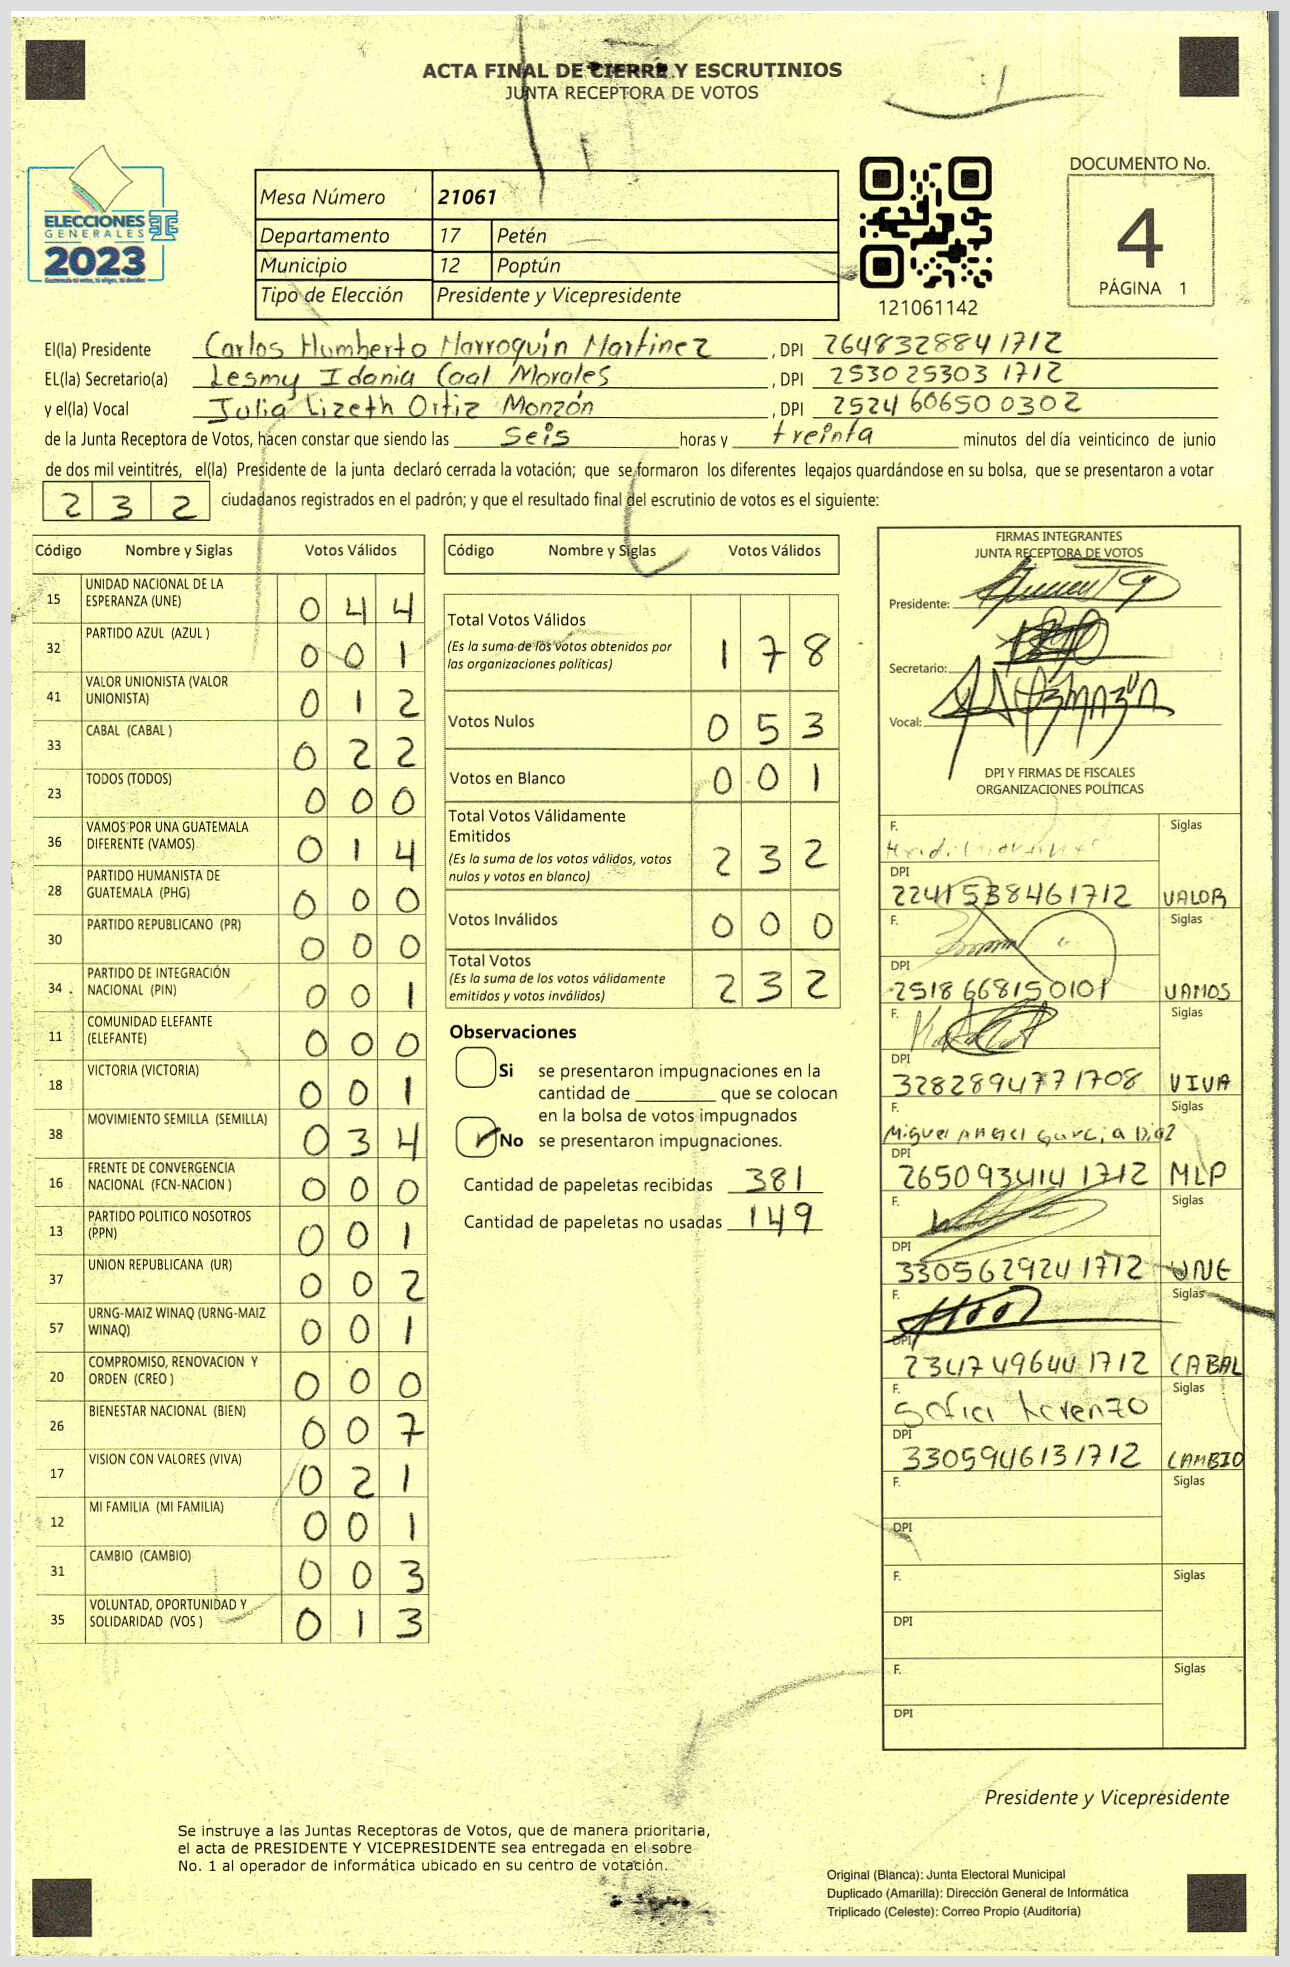 ACTA FINAL DE CIERRE Y ESCRUTINIOS
JUNTA RECEPTORA DE VOTOS
ELECCIONES
GENERALES
2023
Mesa Número 21061
Departamento 17 Petén
Municipio 12 Poptún
Tipo de Elección Presidente y Vicepresidente
121061142
DOCUMENTO No.
4
PÁGINA 1
El(la) Presidente Carlos Humberto Marroquin Martinez , DPI 2648328841712
EL(la) Secretario(a) Lesmy Idania Caal Morales , DPI 2530253031712
y el(la) Vocal Julia Lizeth Ortiz Monzón , DPI 2524606500302
de la Junta Receptora de Votos, hacen constar que siendo las seis horas y treinta minutos del día veinticinco de junio
de dos mil veintitrés, el(la) Presidente de la junta declaró cerrada la votación; que se formaron los diferentes legajos guardándose en su bolsa, que se presentaron a votar
232 ciudadanos registrados en el padrón; y que el resultado final del escrutinio de votos es el siguiente:
Código Nombre y Siglas Votos Válidos
15 UNIDAD NACIONAL DE LA ESPERANZA (UNE) 044
32 PARTIDO AZUL (AZUL ) 001
41 VALOR UNIONISTA (VALOR UNIONISTA) 012
33 CABAL (CABAL ) 022
23 TODOS (TODOS) 000
36 VAMOS POR UNA GUATEMALA DIFERENTE (VAMOS) 014
28 PARTIDO HUMANISTA DE GUATEMALA (PHG) 000
30 PARTIDO REPUBLICANO (PR) 000
34 PARTIDO DE INTEGRACIÓN NACIONAL (PIN) 001
11 COMUNIDAD ELEFANTE (ELEFANTE) 000
18 VICTORIA (VICTORIA) 001
38 MOVIMIENTO SEMILLA (SEMILLA) 034
16 FRENTE DE CONVERGENCIA NACIONAL (FCN-NACION ) 000
13 PARTIDO POLITICO NOSOTROS (PPN) 001
37 UNION REPUBLICANA (UR) 002
57 URNG-MAIZ WINAQ (URNG-MAIZ WINAQ) 001
20 COMPROMISO, RENOVACION Y ORDEN (CREO ) 000
26 BIENESTAR NACIONAL (BIEN) 007
17 VISION CON VALORES (VIVA) 021
12 MI FAMILIA (MI FAMILIA) 001
31 CAMBIO (CAMBIO) 003
35 VOLUNTAD, OPORTUNIDAD Y SOLIDARIDAD (VOS ) 013
Código Nombre y Siglas Votos Válidos
Total Votos Válidos 178
(Es la suma de los votos obtenidos por
las organizaciones políticas)
Votos Nulos 053
Votos en Blanco 001
Total Votos Válidamente
Emitidos 232
(Es la suma de los votos válidos, votos
nulos y votos en blanco)
Votos Inválidos 000
Total Votos 232
(Es la suma de los votos válidamente
emitidos y votos inválidos)
Observaciones
Si se presentaron impugnaciones en la
cantidad de ________ que se colocan
en la bolsa de votos impugnados
No se presentaron impugnaciones.
Cantidad de papeletas recibidas 381
Cantidad de papeletas no usadas 149
FIRMAS INTEGRANTES
JUNTA RECEPTORA DE VOTOS
Presidente:
Secretario:
Vocal:
DPI Y FIRMAS DE FISCALES
ORGANIZACIONES POLÍTICAS
F. Siglas
DPI
2241538461712 VALOR
F. Siglas
DPI
2518668150101 VAMOS
F. Siglas
DPI
3282894771708 VIVA
F. Siglas
Miguel Angel Garcia Diaz
DPI
2650934141712 MLP
F. Siglas
DPI
3305629241712 UNE
F. Siglas
DPI
2347496441712 CABAL
F. Siglas
Sofia Lorenzo
DPI
3305946131712 CAMBIO
F. Siglas
DPI
F. Siglas
DPI
F. Siglas
DPI
Presidente y Vicepresidente
Se instruye a las Juntas Receptoras de Votos, que de manera prioritaria,
el acta de PRESIDENTE Y VICEPRESIDENTE sea entregada en el sobre
No. 1 al operador de informática ubicado en su centro de votación.
Original (Blanca): Junta Electoral Municipal
Duplicado (Amarilla): Dirección General de Informática
Triplicado (Celeste): Correo Propio (Auditoría)